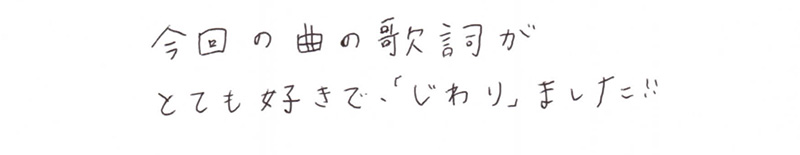 今回の曲の歌詞が
とても好きで、「じわり」ました!!